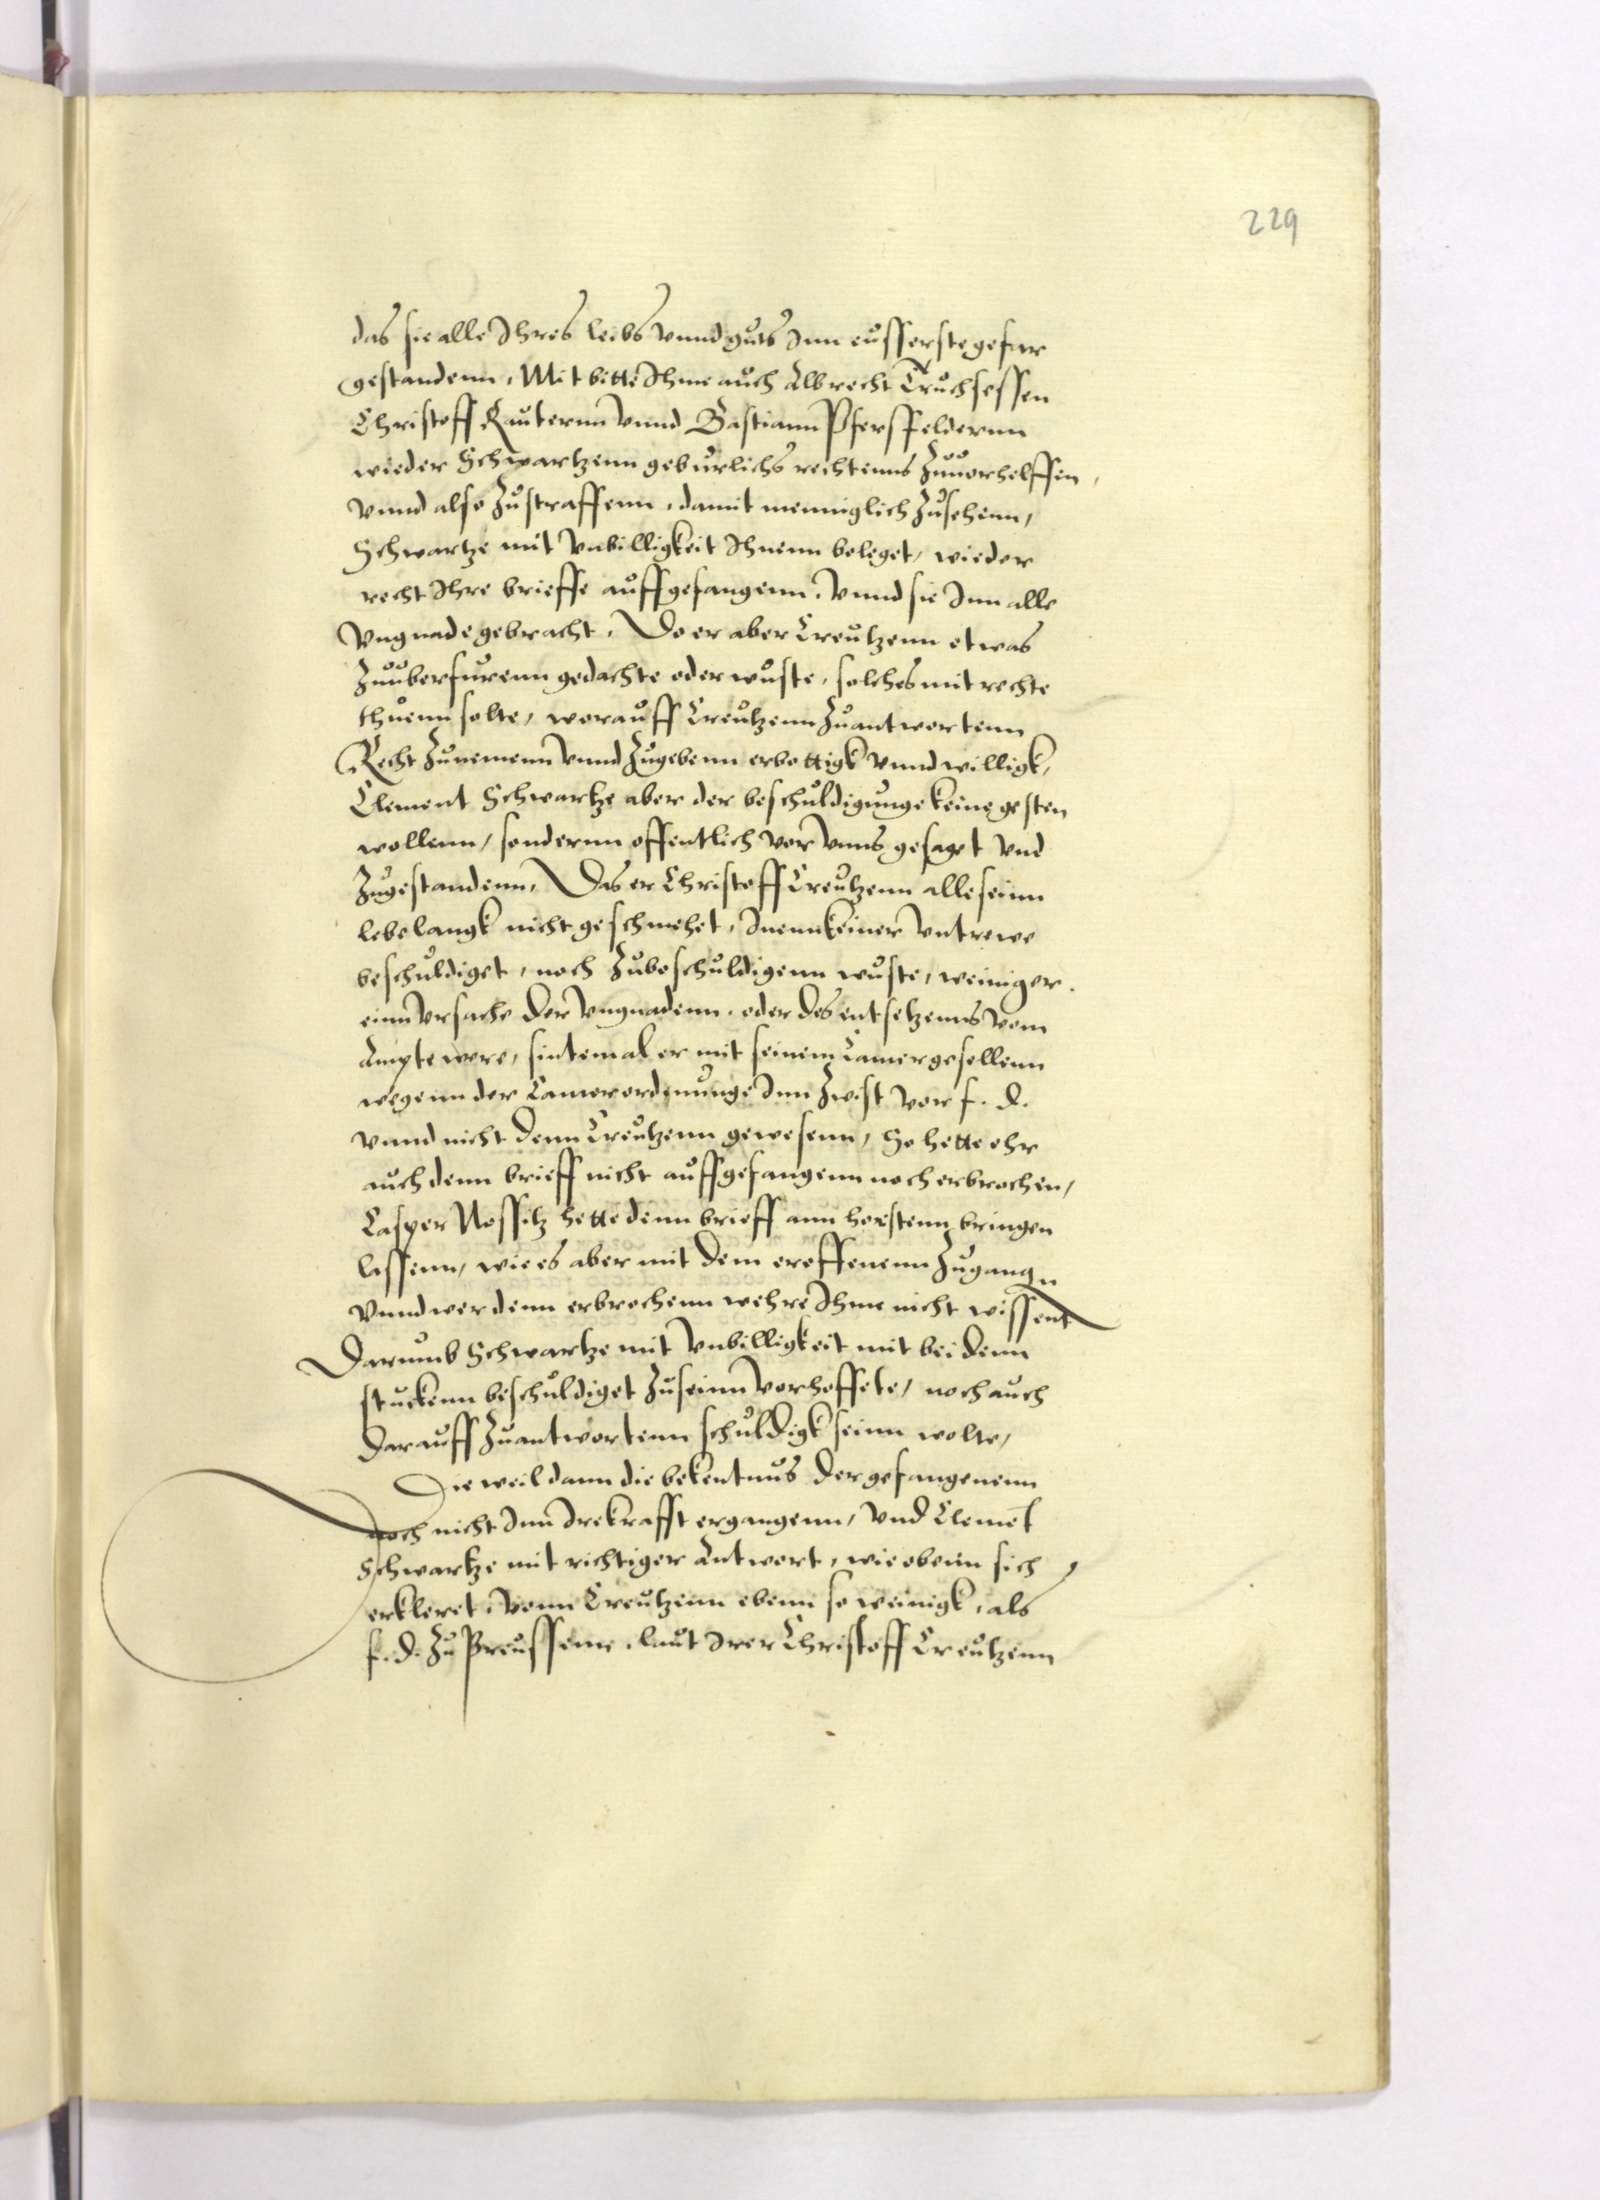 229
das sie alle Ihres leibs vnnd guts Inn eusserste gefar
gestandenn, Mit bitte Ihme auch Albrecht Truchsessen
Christoff Rauternn vnnd Bastiann Pfersfeldernn
wieder Schwartzenn geburlichs rechtenns Zuuorhelffen,
vnnd also Zustraffenn, damit menniglich Zusehenn,
Schwartze mit vnbilligkeit Ihnenn beleget, wieder
recht Ihre brieffe auffgefangenn, vnnd sie Inn alle
vngnade gebracht. Do er aber Creutzenn etwas
Zuuberfurenn gedachte oder wuste, solches mit rechte
thuenn solte, worauff Creutzenn Zuantwortenn
Recht Zunemenn vnnd Zugebenn erbottigk vnnd willigk,
Clement Schwartze aber der beschuldigunge keine gesten
wollenn, sondernn offentlich vor vnns gesaget vnd
Zugestandenn, Das er Christoff Creutzenn alle seinn
lebelangk nicht geschmehet, Inenn keiner vntrewe
beschuldiget, noch Zubeschuldigenn wuste, weiniger
einn vrsache der vngnadenn, oder des entsetzenns vom
Ampte were, sintemal er mit seinem Camergesellenn
wegenn der Camerordnunge Inn Zwist vor f. d.
vnnd nicht denn Creutzenn gewesenn, So hette ehr
auch denn brieff nicht auffgefangenn noch erbrochen,
Casper Nossitz hette denn brieff ann horstenn bringen
lassenn, wie es aber mit dem eroffenenn Zugangn
vnnd wer denn erbrochenn wehre Ihme nicht wissent
Darumb Schwartze mit vnbilligkeit mit beidenn
stuckenn beschuldiget Zuseinn vorhoffete, noch auch
darauff Zuantwortenn schuldigk seinn wolte,
Die weil dann die bekentnus der gefangenenn
noch nicht Inn Ire krafft ergangenn, vnd Clemet
Schwartze mit richtiger Antwort, wie obenn sich
erkleret, vonn Creutzenn ebenn so weinigk, als
f. d. Zu Preussenn, laut Irer Christoff Creutzenn